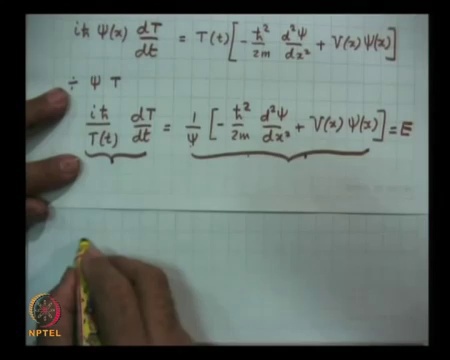 iħ Ψ(x) dT/dt = T(t) [ -ħ²/2m d²Ψ/dx² + V(x) Ψ(x) ]
÷ Ψ T
iħ/T(t) dT/dt = 1/Ψ [ -ħ²/2m d²Ψ/dx² + V(x) Ψ(x) ] = E
NPTEL